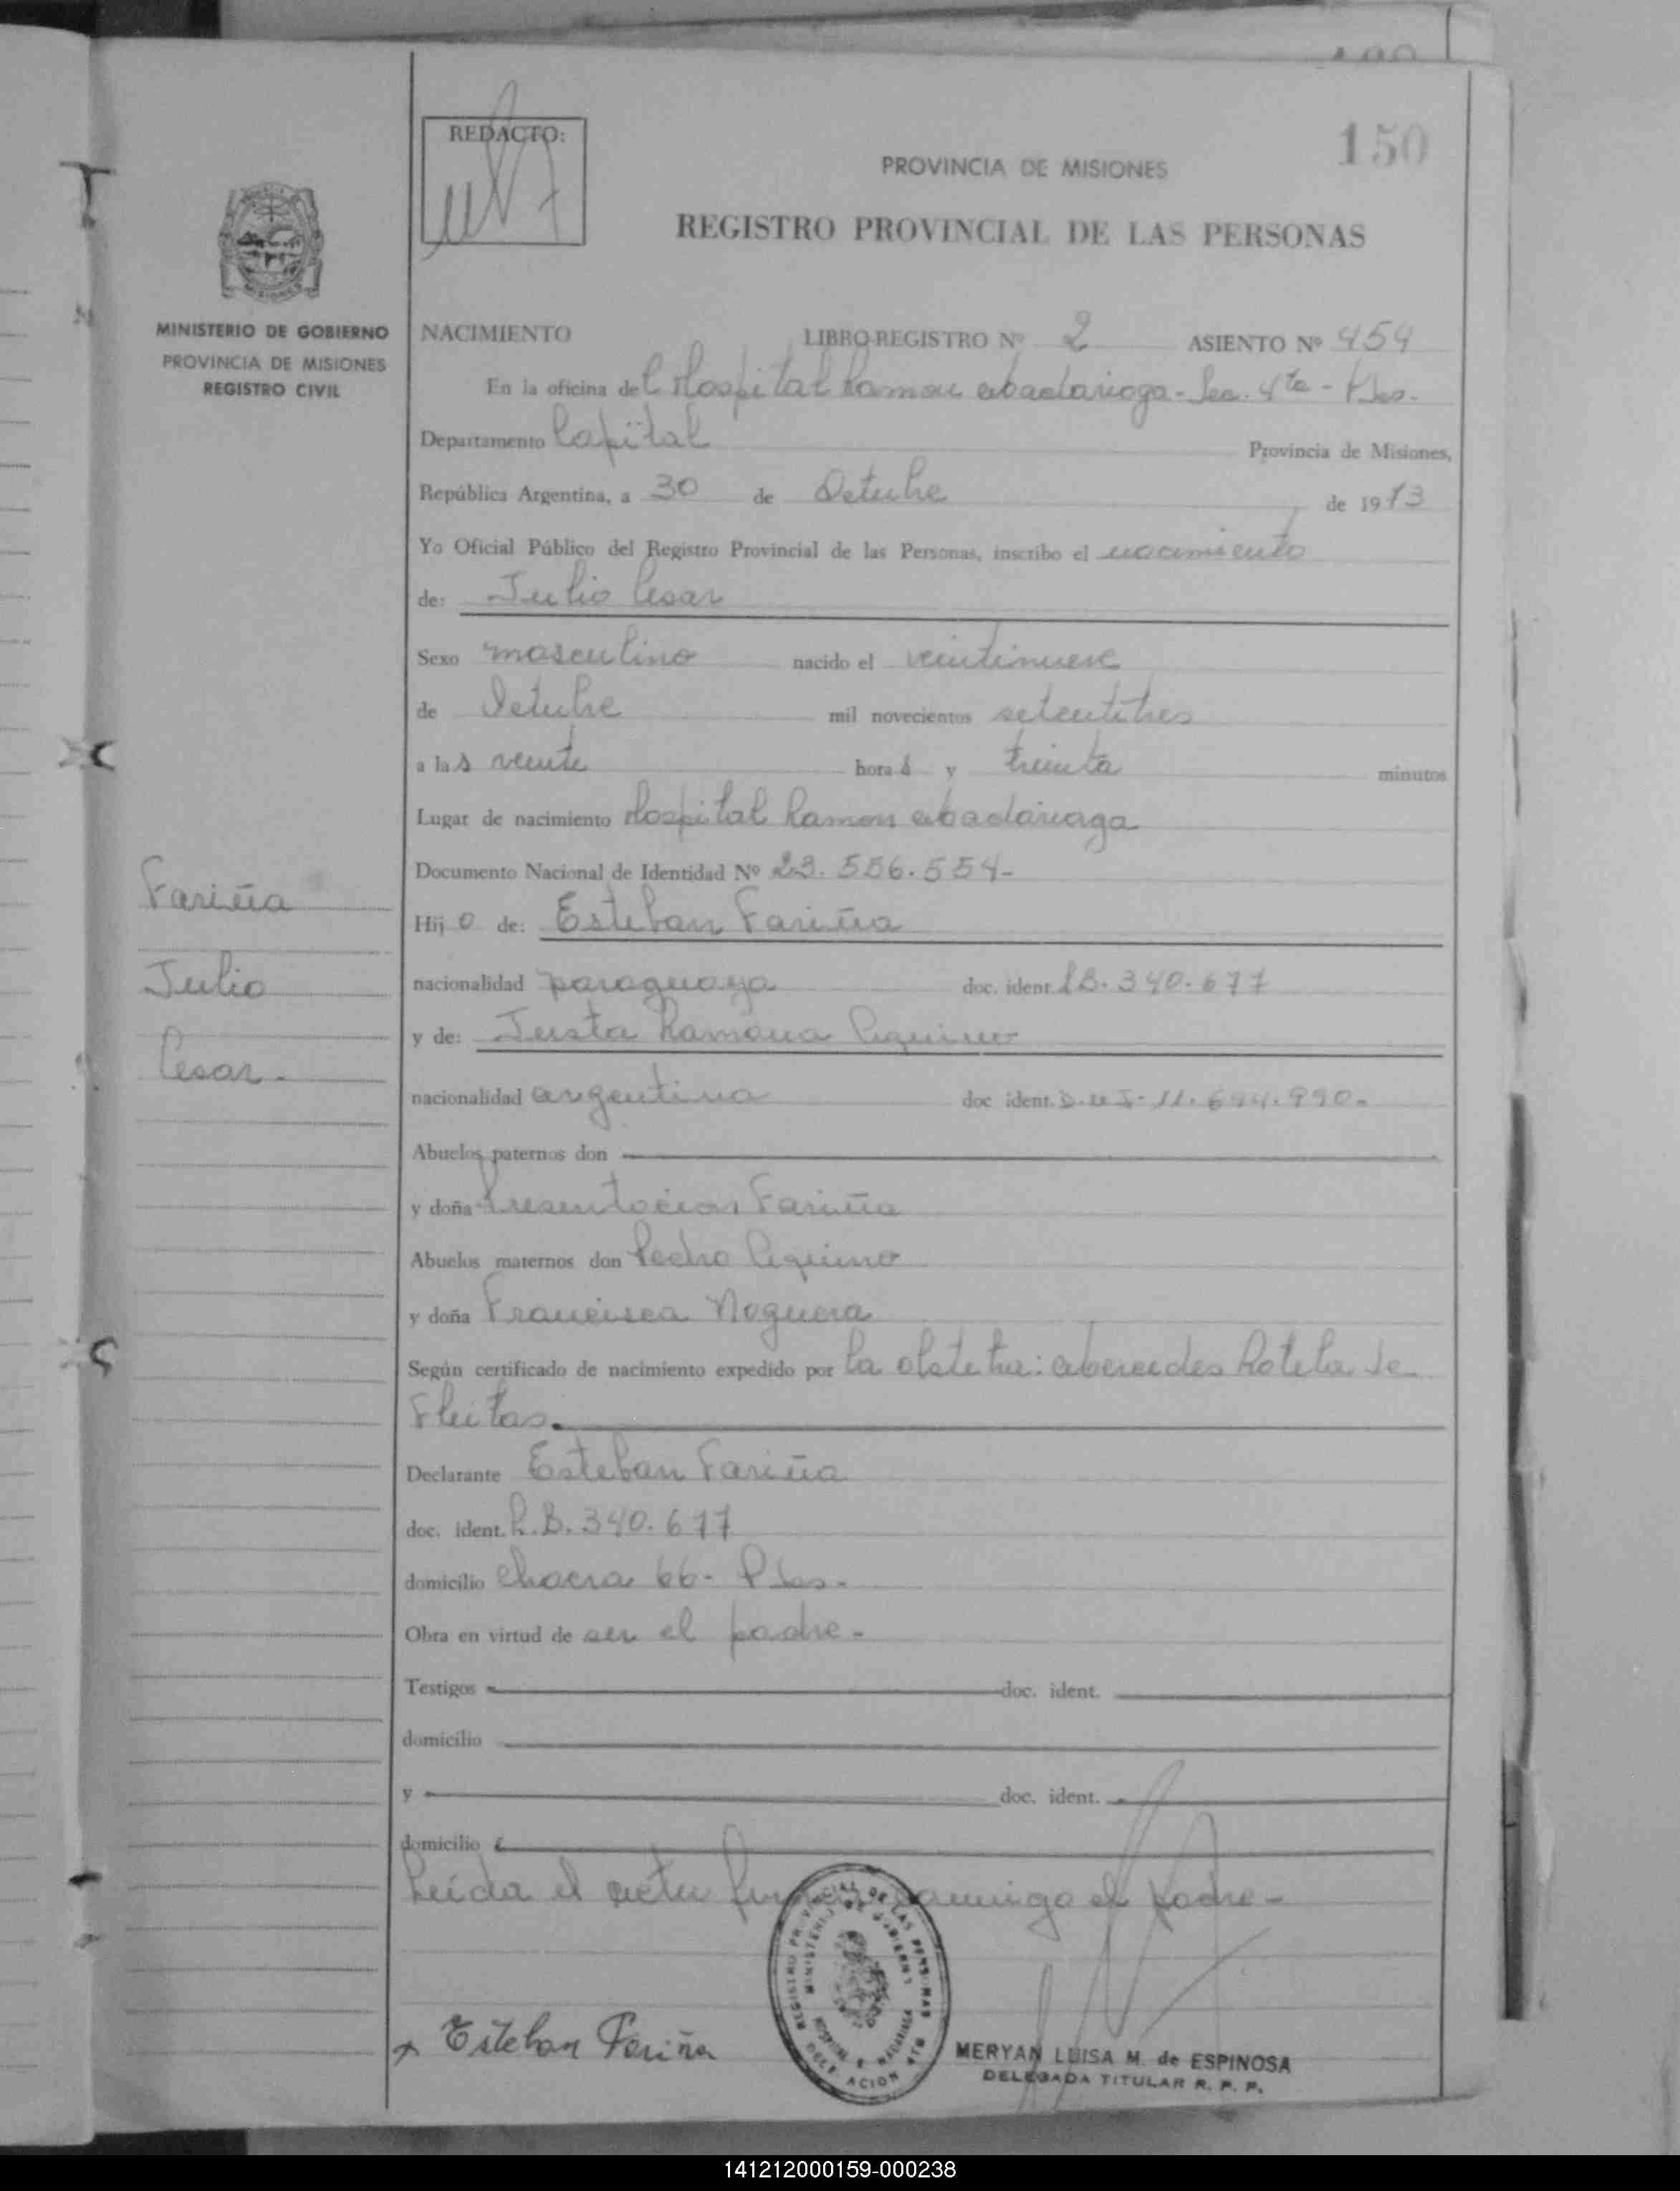 REDACTO:
150
PROVINCIA DE MISIONES
REGISTRO PROVINCIAL DE LAS PERSONAS
MISIONES
MINISTERIO DE GOBIERNO
PROVINCIA DE MISIONES
REGISTRO CIVIL
NACIMIENTO LIBRO-REGISTRO Nº 2 ASIENTO Nº 454
En la oficina del Hospital Ramon Madariaga - Sec. 4ta - Pdas.
Departamento Capital Provincia de Misiones,
República Argentina, a 30 de Octubre de 1973
Yo Oficial Público del Registro Provincial de las Personas, inscribo el nacimiento
de: Julio Cesar
Sexo masculino nacido el veintinueve
de Octubre mil novecientos setentitres
a las veinte horas y treinta minutos
Lugar de nacimiento Hospital Ramon Madariaga
Documento Nacional de Identidad Nº 23.556.554-
Fariña
Hijo de: Esteban Fariña
Julio
nacionalidad paraguaya doc. ident. 340.677
y de: Justa Ramona Aquino
Cesar.-
nacionalidad argentina doc ident. D.N.I. 11.694.990.-
Abuelos paternos don
y doña Presentacion Fariña
Abuelos maternos don Pedro Aquino
y doña Francisca Noguera
Según certificado de nacimiento expedido por la obstetra: Mercedes Rotela de
Fleitas.
Declarante Esteban Fariña
doc. ident. 340.677
domicilio Chacra 66- Pdas.-
Obra en virtud de ser el padre.-
Testigos doc. ident.
domicilio
y doc. ident.
domicilio
Leída el acta firma conmigo el padre.-
REGISTRO PROVINCIAL DE LAS PERSONAS
MINISTERIO DE GOBIERNO
HOSPITAL R. MADARIAGA
DELEGACION 4TA
Esteban Fariña
MERYAN LUISA M. de ESPINOSA
DELEGADA TITULAR R. P. P.
141212000159-000238